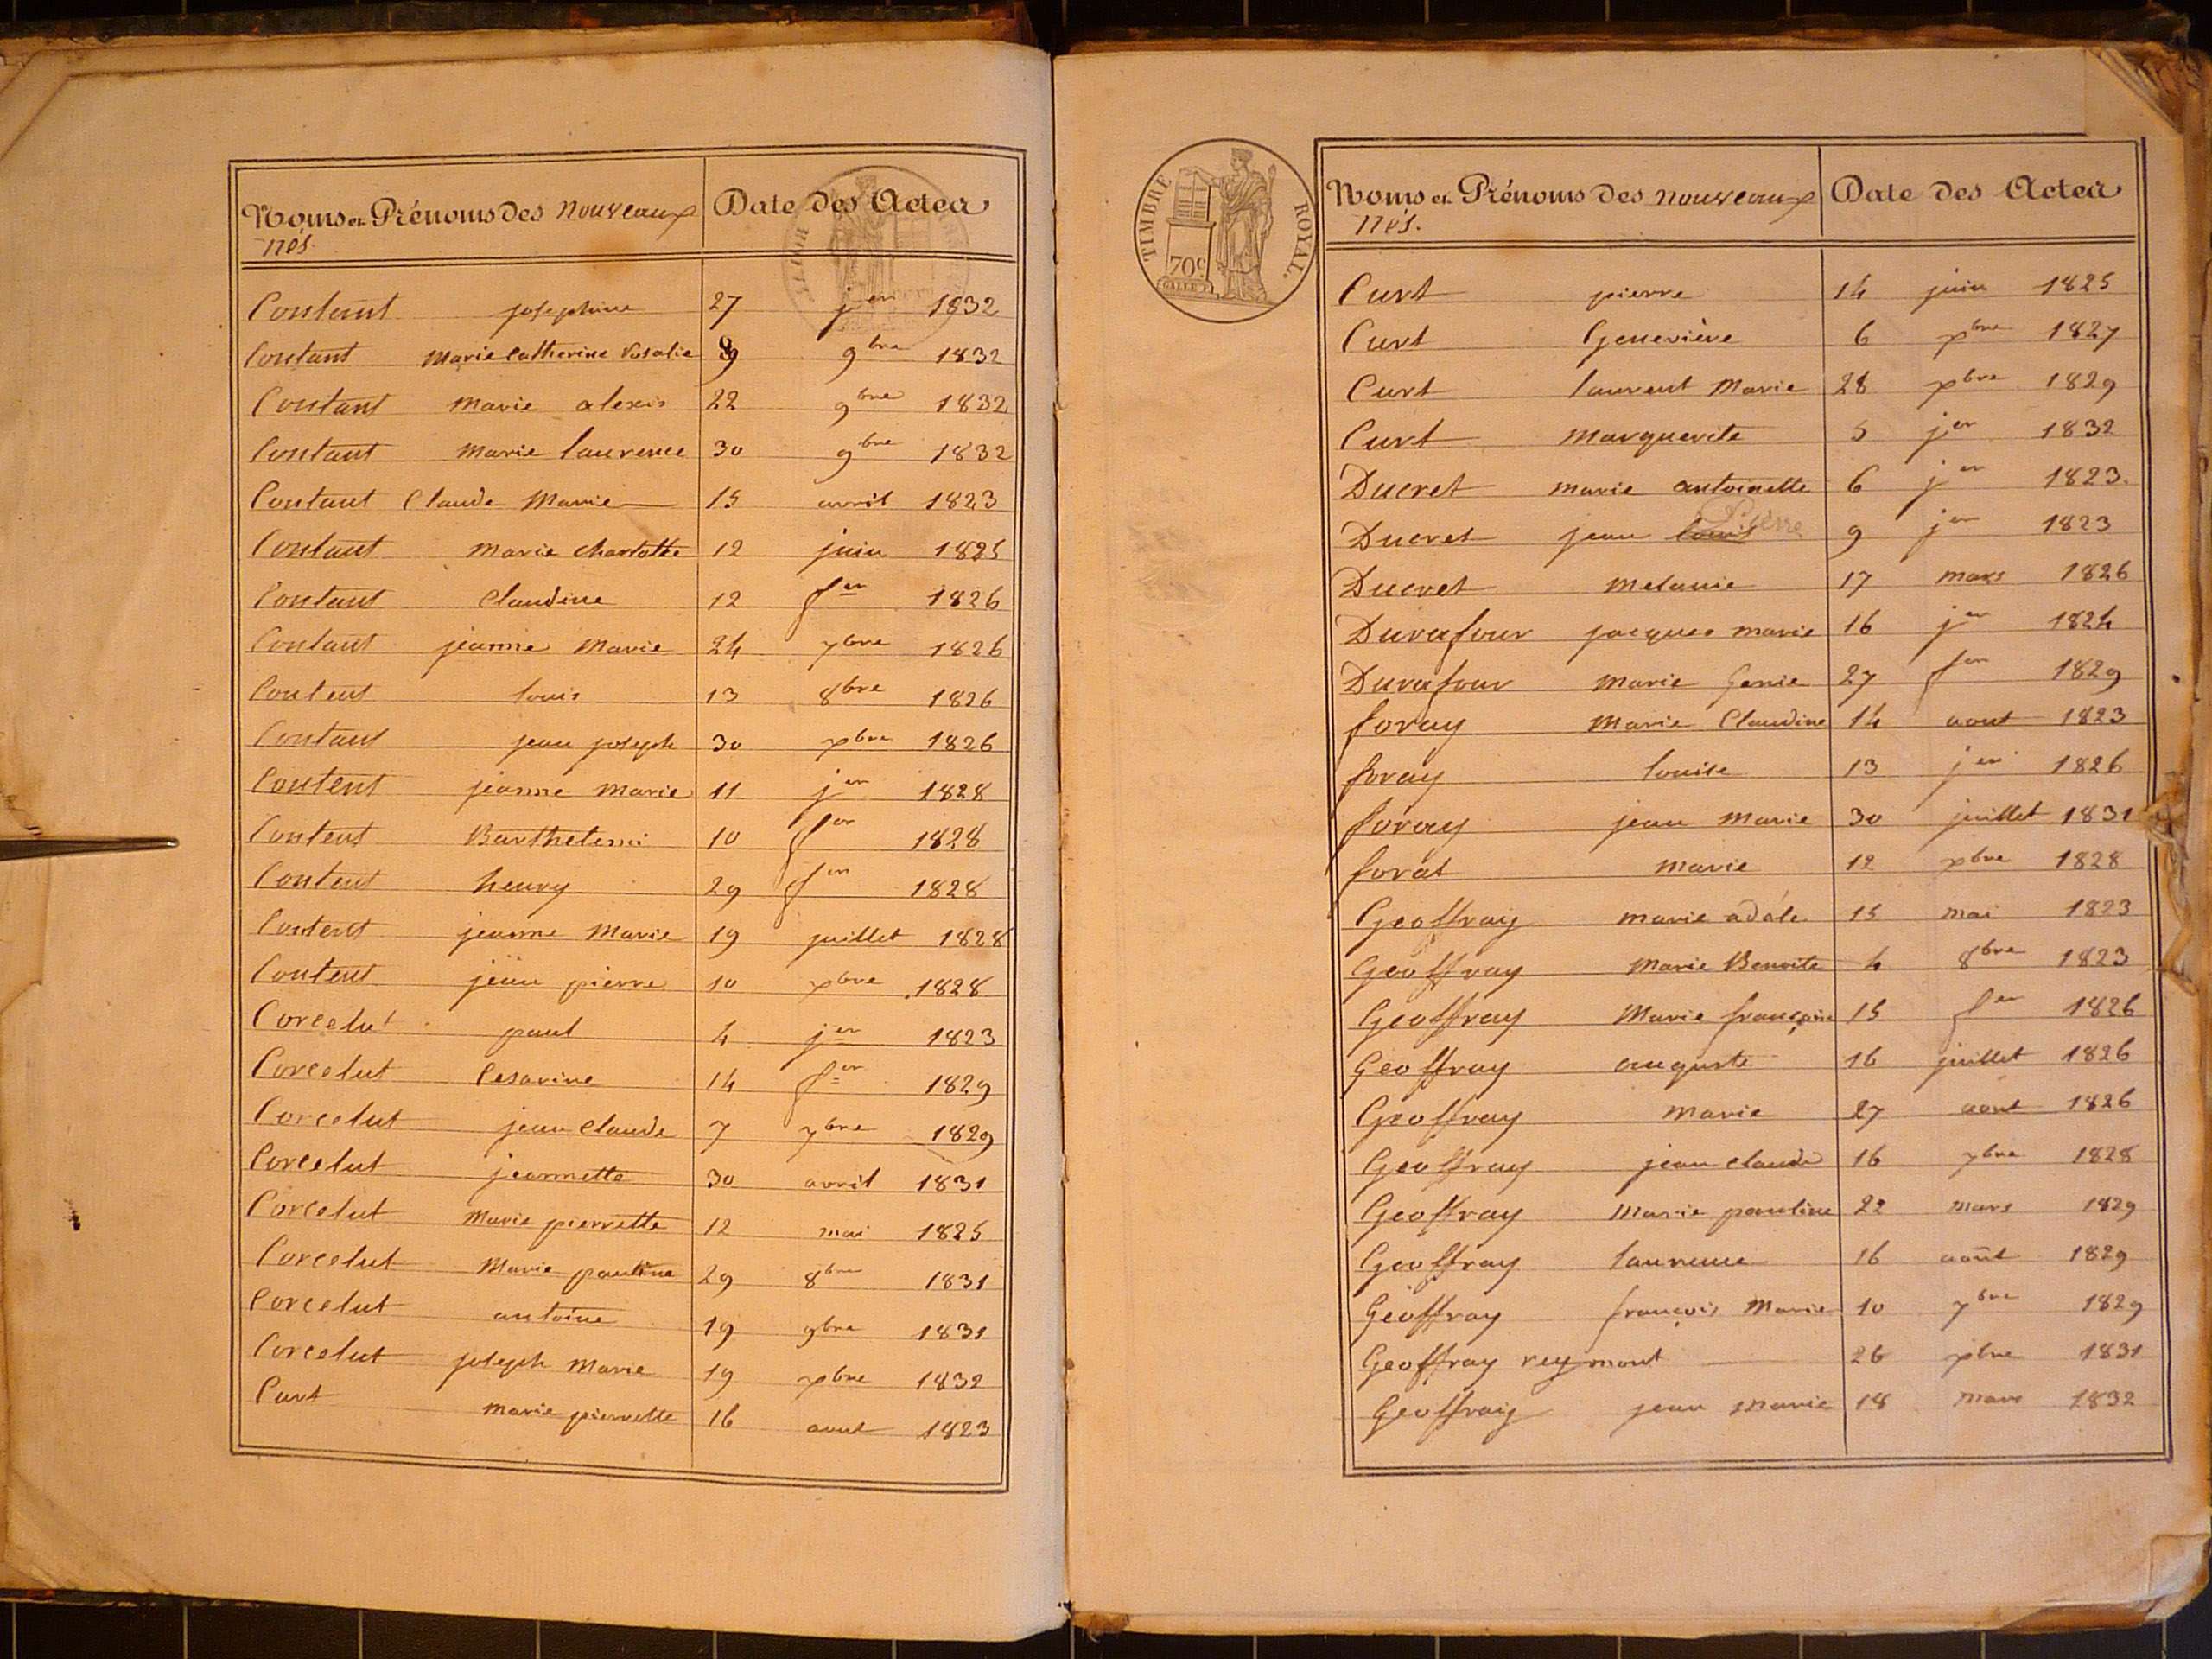 Noms et Prénoms des nouveaux Date des Actes
nés.
Contant josephine 27 jer 1832
Contant Marie Catherine Rosalie 9 9bre 1832
Contant Marie alexis 22 9bre 1832
Contant Marie laurence 30 9bre 1832
Contant Claude Marie 15 avril 1823
Contant Marie Charlotte 12 juin 1825
Contant Claudine 12 fer 1826
Contant jeanne Marie 24 7bre 1826
Content louis 13 8bre 1826
Contant jean joseph 30 xbre 1826
Content jeanne Marie 11 jer 1828
Content Barthelemi 10 fer 1828
Content henry 29 fer 1828
Content jeanne Marie 19 juillet 1828
Content jean pierre 10 xbre 1828
Corcelut paul 4 jer 1823
Corcelut Cesarine 14 fer 1829
Corcelut jean Claude 7 7bre 1829
Corcelut jeannette 30 avril 1831
Corcelut Marie pierrette 12 mai 1825
Corcelut Marie pauline 29 8bre 1831
Corcelut antoine 19 9bre 1831
Corcelut joseph Marie 19 xbre 1832
Curt marie pierrette 16 aout 1823
TIMBRE ROYAL.
70c
Noms et Prénoms des nouveaux Date des Actes
nés.
Curt pierre 14 juin 1825
Curt Geneviève 6 xbre 1827
Curt laurent Marie 28 xbre 1829
Curt Marguerite 5 jer 1832
Ducret marie antoinette 6 jer 1823.
Ducret jean louis Pierre 9 jer 1823
Ducret Melanie 17 mars 1826
Durafour jacques marie 16 jer 1824
Durafour Marie Genie 27 fer 1829
foray Marie Claudine 14 aout 1823
foray louise 13 jer 1826
foray jean Marie 30 juillet 1831
forat Marie 12 xbre 1828
Geoffray Marie adéle 15 mai 1823
Geoffray Marie Benoite 4 8bre 1823
Geoffray Marie françoise 15 fer 1826
Geoffray auguste 16 juillet 1826
Geoffray Marie 27 aout 1826
Geoffray jean Claude 16 7bre 1828
Geoffray Marie pauline 22 mars 1829
Geoffray laurence 16 août 1829
Geoffray françois Marie 10 7bre 1829
Geoffray reymont 26 xbre 1831
Geoffray jean Marie 18 mars 1832